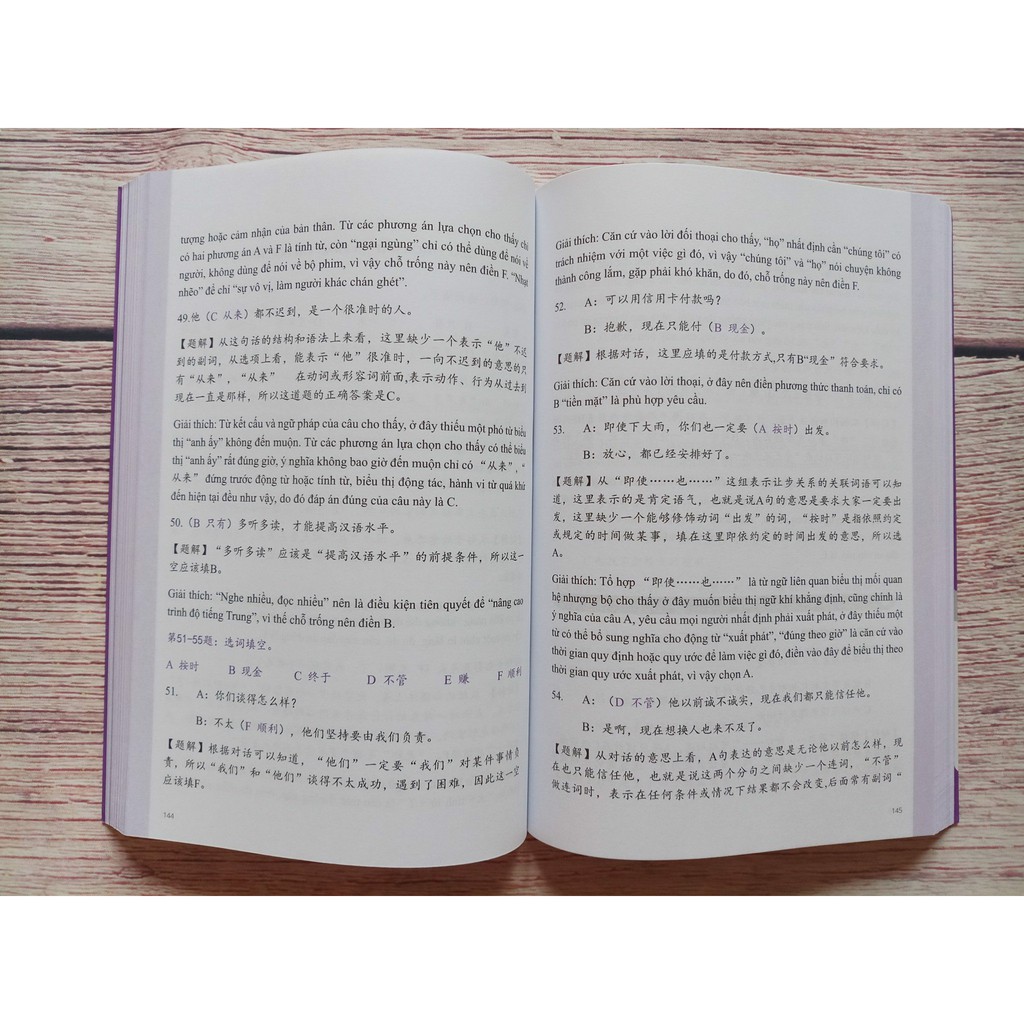 tượng hoặc cảm nhận của bản thân. Từ các phương án lựa chọn cho thấy chỉ
có hai phương án A và F là tính từ, còn "ngại ngùng" chỉ có thể dùng để nói về
người, không dùng để nói về bộ phim, vì vậy chỗ trống này nên điền F. "Nhạt
nhẽo" để chỉ "sự vô vị, làm người khác chán ghét".
49.他（C 从来）都不迟到，是一个很准时的人。
【题解】从这句话的结构和语法上来看，这里缺少一个表示“他”不迟
到的副词，从选项上看，能表示“他”很准时，一向不迟到的意思的只
有“从来”，“从来” 在动词或形容词前面,表示动作、行为从过去到
现在一直是那样，所以这道题的正确答案是C。
Giải thích: Từ kết cấu và ngữ pháp của câu cho thấy, ở đây thiếu một phó từ biểu
thị "anh ấy" không đến muộn. Từ các phương án lựa chọn cho thấy có thể biểu
thị "anh ấy" rất đúng giờ, ý nghĩa không bao giờ đến muộn chỉ có “从来”, “
从来” đứng trước động từ hoặc tính từ, biểu thị động tác, hành vi từ quá khứ
đến hiện tại đều như vậy, do đó đáp án đúng của câu này là C.
50.（B 只有）多听多读，才能提高汉语水平。
【题解】“多听多读”应该是“提高汉语水平”的前提条件，所以这一
空应该填B。
Giải thích: "Nghe nhiều, đọc nhiều" nên là điều kiện tiên quyết để "nâng cao
trình độ tiếng Trung", vì thế chỗ trống nên điền B.
第51-55题：选词填空。
A 按时 B 现金 C 终于 D 不管 E 赚 F 顺利
51. A：你们谈得怎么样？
B：不太（F 顺利），他们坚持要由我们负责。
【题解】根据对话可以知道，“他们”一定要“我们”对某件事情负
责，所以“我们”和“他们”谈得不太成功，遇到了困难，因此这一空
应该填F。
144
Giải thích: Căn cứ vào lời đối thoại cho thấy, "họ" nhất định cần "chúng tôi" có
trách nhiệm với một việc gì đó, vì vậy "chúng tôi" và "họ" nói chuyện không
thành công lắm, gặp phải khó khăn, do đó, chỗ trống này nên điền F.
52. A：可以用信用卡付款吗？
B：抱歉，现在只能付（B 现金）。
【题解】根据对话，这里应填的是付款方式,只有B“现金”符合要求。
Giải thích: Căn cứ vào lời thoại, ở đây nên điền phương thức thanh toán, chỉ có
B "tiền mặt" là phù hợp yêu cầu.
53. A：即使下大雨，你们也一定要（A 按时）出发。
B：放心，都已经安排好了。
【题解】从“即使……也……”这组表示让步关系的关联词语可以知
道，这里表示的是肯定语气，也就是说A句的意思是要求大家一定要出
发，这里缺少一个能够修饰动词“出发”的词，“按时”是指依照约定
或规定的时间做某事，填在这里即依约定的时间出发的意思，所以选
A。
Giải thích: Tổ hợp “即使……也……” là từ ngữ liên quan biểu thị mối quan
hệ nhượng bộ cho thấy ở đây muốn biểu thị ngữ khí khẳng định, cũng chính là
ý nghĩa của câu A, yêu cầu mọi người nhất định phải xuất phát, ở đây thiếu một
từ có thể bổ sung nghĩa cho động từ "xuất phát", "đúng theo giờ" là căn cứ vào
thời gian quy định hoặc quy ước để làm việc gì đó, điền vào đây để biểu thị theo
thời gian quy ước xuất phát, vì vậy chọn A.
54. A：（D 不管）他以前诚不诚实，现在我们都只能信任他。
B：是啊，现在想换人也来不及了。
【题解】从对话的意思上看，A句表达的意思是无论他以前怎么样，现
在也只能信任他，也就是说这两个分句之间缺少一个连词，“不管”
做连词时，表示在任何条件或情况下结果都不会改变,后面常有副词“
145